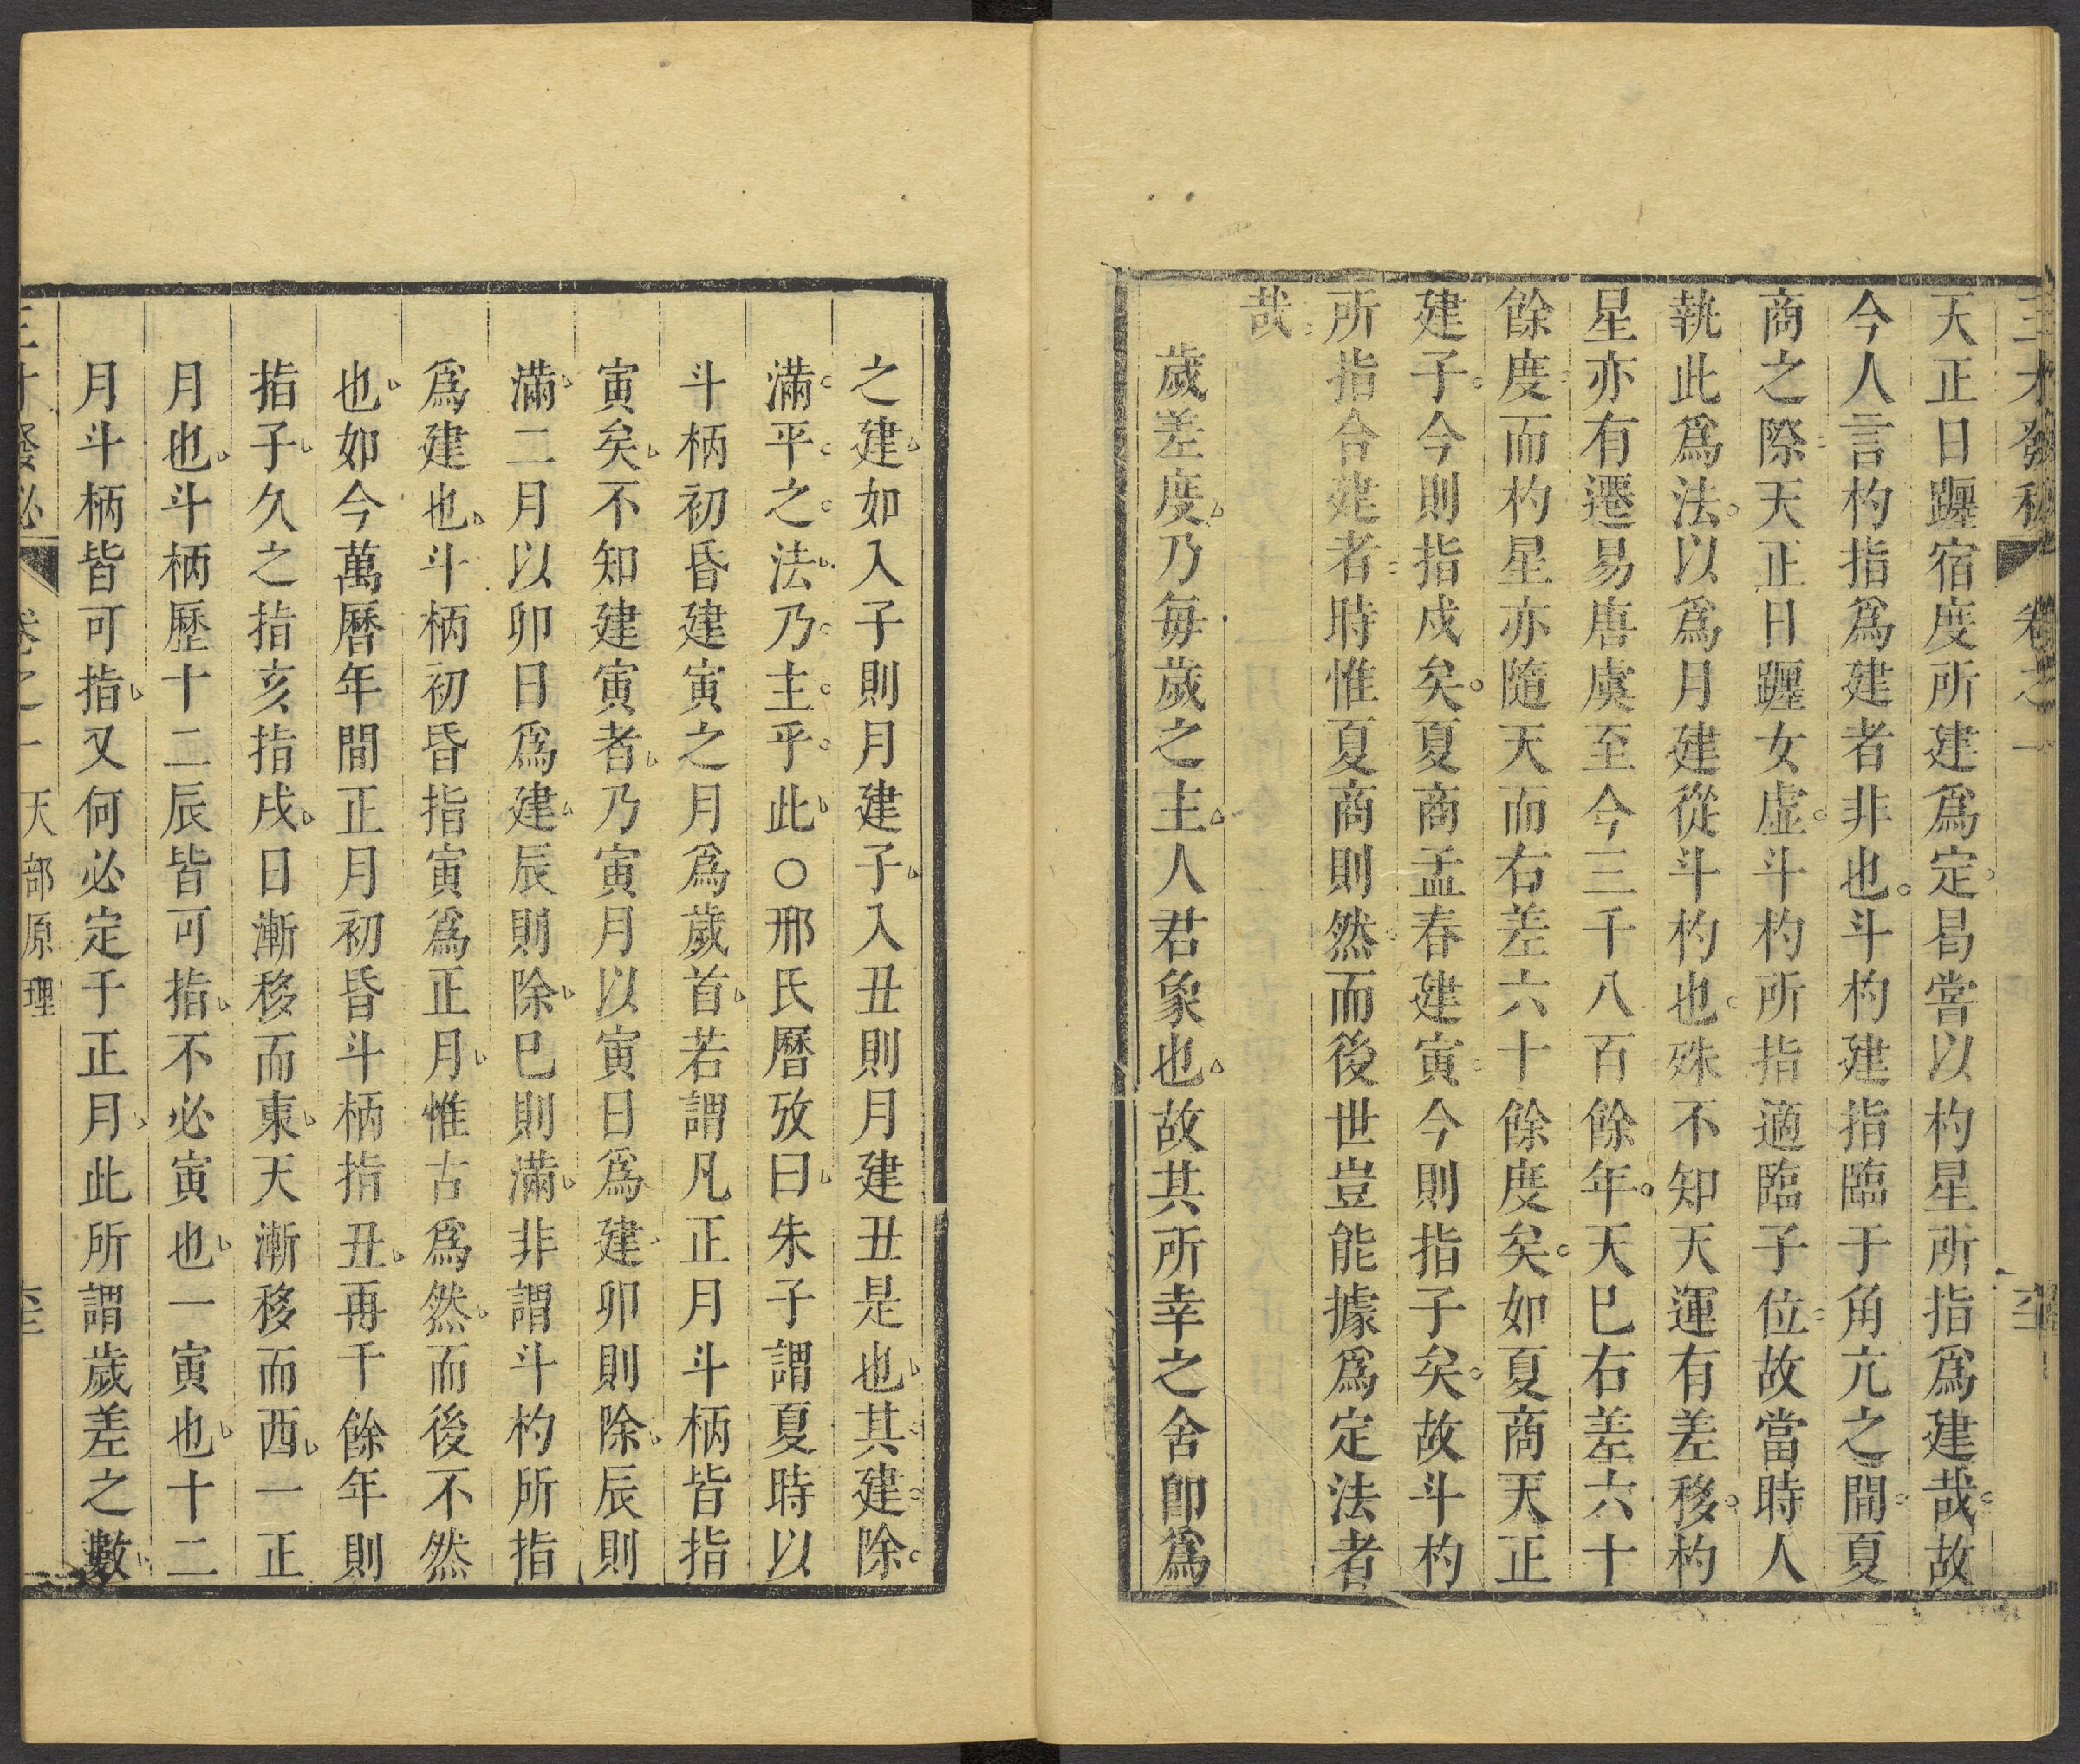 三才發秘 卷之一
天正日躔宿度所建爲定曷嘗以杓星所指爲建哉故
今人言杓指爲建者非也斗杓建指臨于角亢之間夏
商之際天正日躔女虛斗杓所指適臨子位故當時人
執此爲法以爲月建從斗杓也殊不知天運有差移杓
星亦有遷易唐虞至今三千八百餘年天巳右差六十
餘度而杓星亦隨天而右差六十餘度矣如夏商天正
建子今則指戍矣夏商孟春建寅今則指子矣故斗杓
所指合建者時惟夏商則然而後世豈能據爲定法者
哉
歲差度乃每歲之主人君象也故其所幸之舍卽爲
之建如入子則月建子入丑則月建丑是也其建除
滿平之法乃主乎此○邢氏曆攷曰朱子謂夏時以
斗柄初昏建寅之月爲歲首若謂凡正月斗柄皆指
寅矣不知建寅者乃寅月以寅日爲建卯則除辰則
滿二月以卯日爲建辰則除巳則滿非謂斗杓所指
爲建也斗柄初昏指寅爲正月惟古爲然而後不然
也如今萬曆年間正月初昏斗柄指丑再千餘年則
指子久之指亥指戌日漸移而東天漸移而西一正
月也斗柄歷十二辰皆可指不必寅也一寅也十二
月斗柄皆可指又何必定于正月此所謂歲差之數
三才發祕 卷之一 天部原理